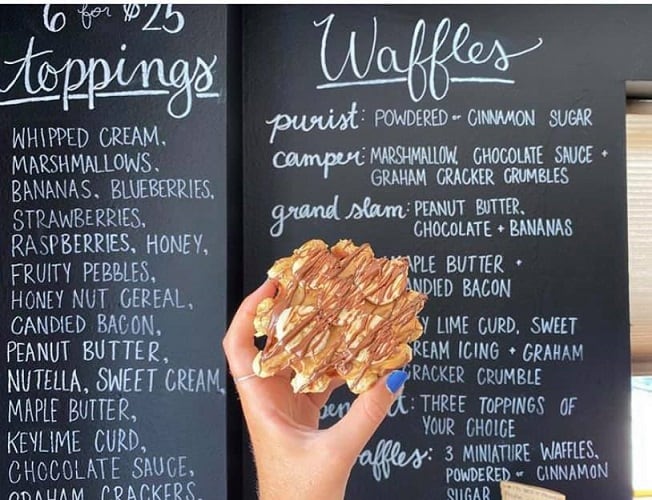 6 for $25
toppings
WHIPPED CREAM,
MARSHMALLOWS,
BANANAS, BLUEBERRIES,
STRAWBERRIES,
RASPBERRIES, HONEY,
FRUITY PEBBLES,
HONEY NUT CEREAL,
CANDIED BACON,
PEANUT BUTTER,
NUTELLA, SWEET CREAM,
MAPLE BUTTER,
KEYLIME CURD,
CHOCOLATE SAUCE,
GRAHAM CRACKERS,
Waffles
purist: POWDERED or CINNAMON SUGAR
camper: MARSHMALLOW, CHOCOLATE SAUCE +
GRAHAM CRACKER CRUMBLES
grand slam: PEANUT BUTTER,
CHOCOLATE + BANANAS
APLE BUTTER +
NDIED BACON
Y LIME CURD, SWEET
REAM ICING + GRAHAM
CRACKER CRUMBLE
: THREE TOPPINGS OF
YOUR CHOICE
affles: 3 MINIATURE WAFFLES,
POWDERED or CINNAMON
SUGAR